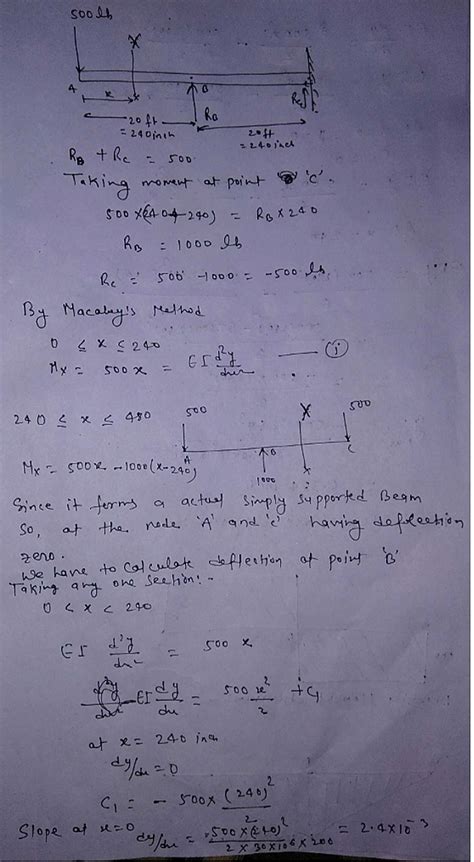 500 lb
X
A
x
B
20 ft
= 240 inch
RB
Rc
20 ft
= 240 inch
RB + Rc = 500
Taking moment at point 'C'.
500 × (240+240) = RB × 240
RB = 1000 lb
Rc = 500 - 1000 = -500 lb
By Macaley's Method
0 ≤ x ≤ 240
Mx = 500x = EI d²y/dx² — (i)
240 ≤ x ≤ 480
500
X
500
A
B
C
1000
x
Mx = 500x - 1000(x-240)
Since it forms a actual simply supported Beam
So, at the node 'A' and 'c' having deflection
zero.
We have to calculate deflection at point 'B'
Taking any one section:-
0 < x < 240
EI d²y/dx² = 500 x
EI dy/dx = 500 x²/2 + C1
at x = 240 inch
dy/dx = 0
C1 = - 500 × (240)²/2
Slope at x=0 dy/dx = -500 × (240)² / 2 × 30 × 10⁶ × 200 = 2.4 × 10⁻³